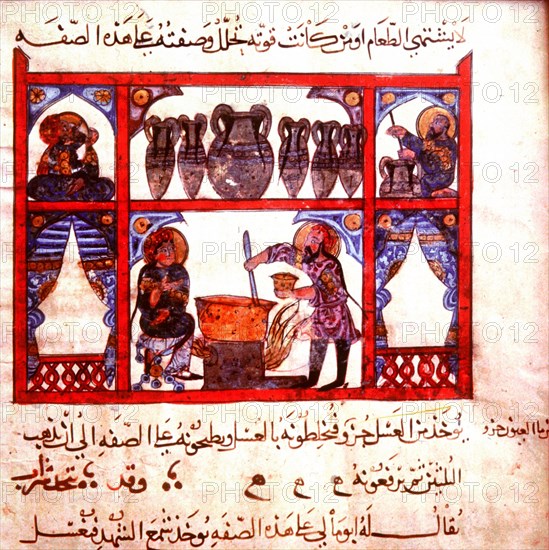 لا يشتهي الطعام او من كانت قوته تخلل وصفته على هذه الصفه
يوخذ من العسل جزو فيخلطونه بالعسل ويطبخونه على الصفه الى ان يذهب
الثلثين ثم يرفعونه وقد يتخذ شراب
يقال له ابومالي على هذه الصفه يوخذ شمع الشهد فيغسل
PHOTO 12